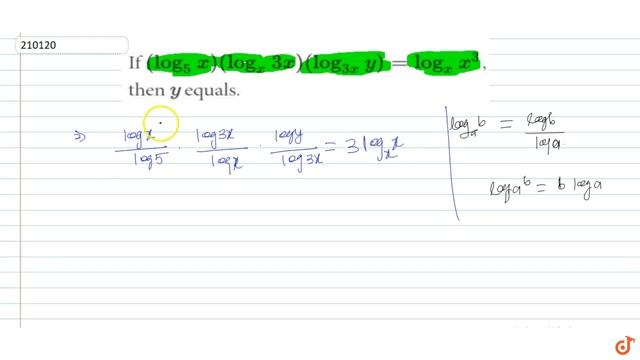 210120
If (log₅ x)(logₓ 3x)(log₃ₓ y) = logₓ x³,
then y equals.
⇒ logx/log5 · log3x/logx · logy/log3x = 3 logₓ x
logₐ b = logb/loga
logaᵇ = b loga